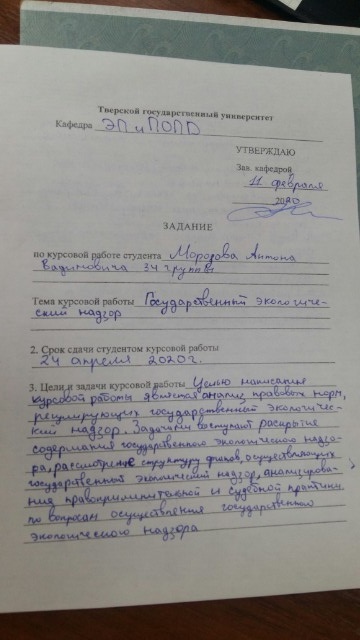 Тверской государственный университет
Кафедра ЭП и ПОПД
УТВЕРЖДАЮ
Зав. кафедрой
11 февраля
2020
ЗАДАНИЕ
по курсовой работе студента Морозова Антона
Вадимовича 34 группы
Тема курсовой работы Государственный экологиче-
ский надзор
2. Срок сдачи студентом курсовой работы
24 апреля 2020г.
3. Цели и задачи курсовой работы Целью написания
курсовой работы является анализ правовых норм,
регулирующих государственный экологичес-
кий надзор. Задачами выступают раскрытие
содержания государственного экологического надзо-
ра, рассмотрение структуру органов, осуществляющих
государственный экологический надзор, анализирова-
ния правоприменительной и судебной практики
по вопросам осуществления государственного
экологического надзора